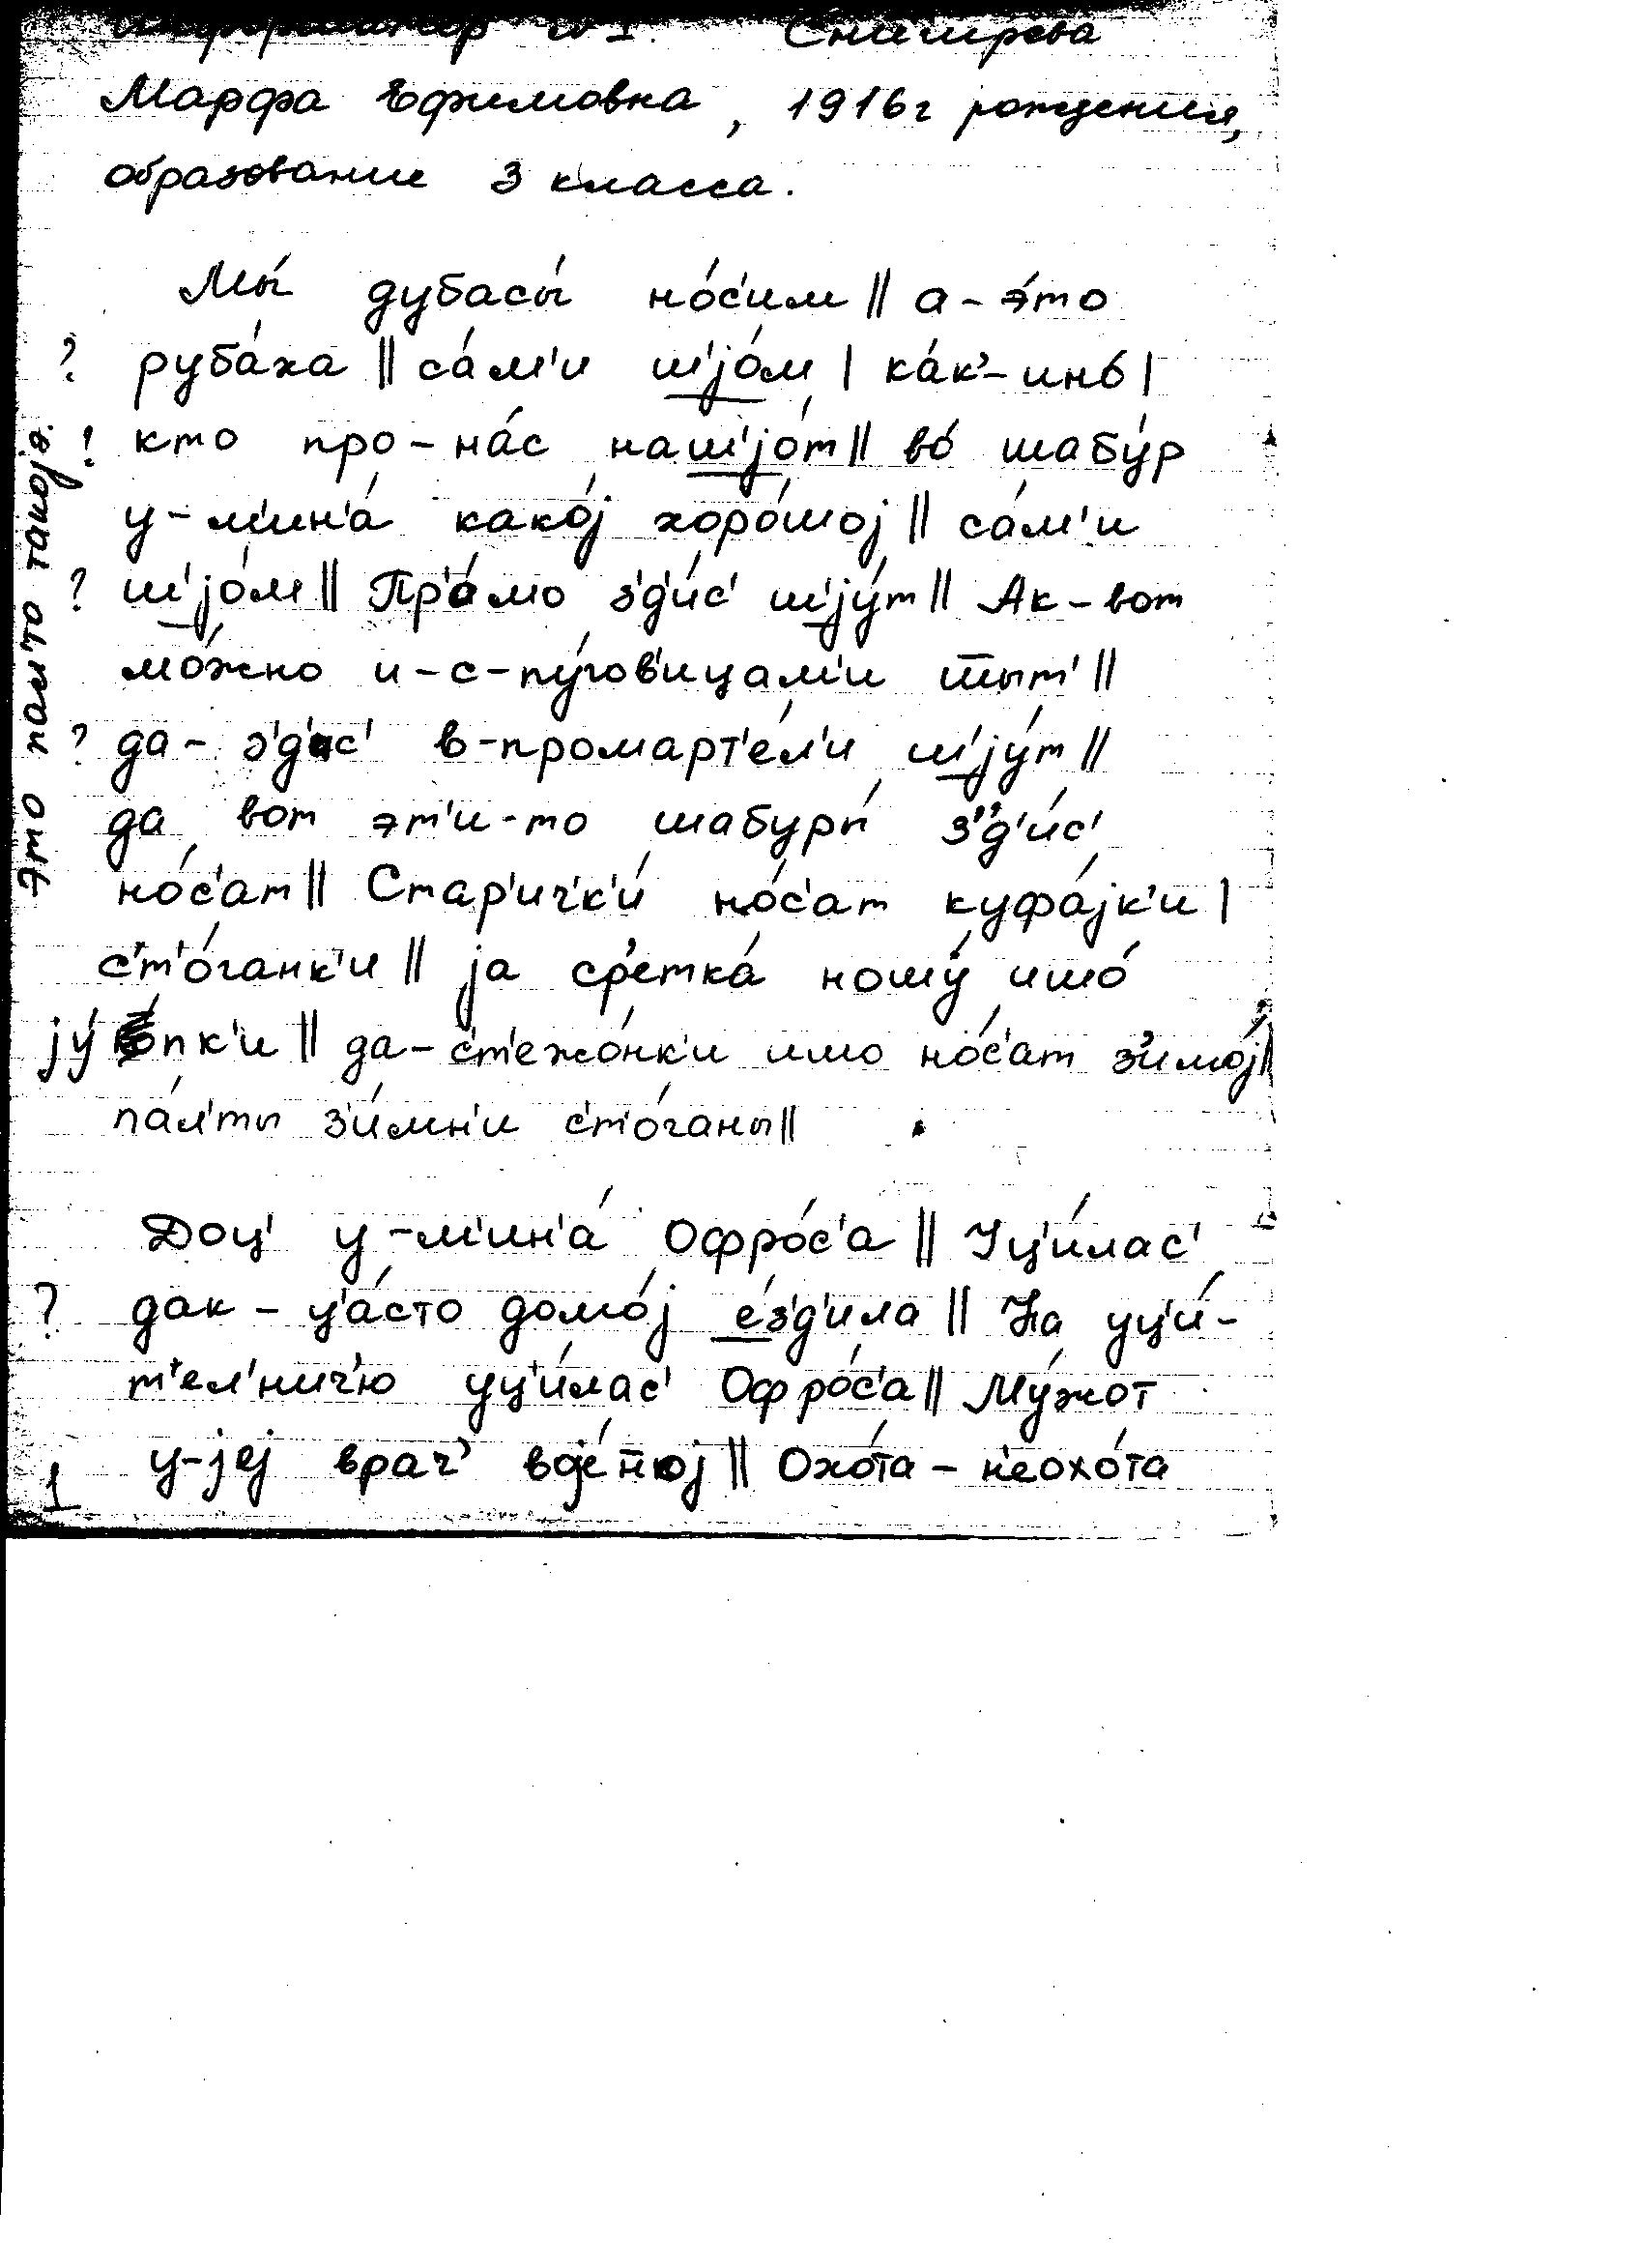 Информатор № 1. Снигирева
Марфа Ефимовна, 1916 г рождения,
образование 3 класса.
Мы́ дубасы́ но́с'им || а-э́то
? руба́ха || са́м'и ш'jо́м | ка́к'-инб |
? кто про-на́с наш'jо́т || во́ шабу́р
у-м'ин'а́ како́j хоро́шоj || са́м'и
? ш'jо́м || Пр'а́мо з'д'и́с' ш'jу́т || Ак-вот
мо́жно и-с-пу́гов'ицам'и шыт' ||
? да-з'д'ис' в-промарт'е́л'и ш'jу́т ||
да вот эт'и-то шабуры́ з'д'и́с'
но́с'ат || Стар'ич'к'и́ но́с'ат куфа́jк'и |
с'т'о́ганк'и || jа ср'етка́ ношу́ ишо́
jу́пк'и || да-с'т'ежо́нк'и ишо но́с'ат з'имо́j ||
па́л'ты з'и́мн'и с'т'о́ганы ||
Это пал'то такоjэ.
Доц' у-м'ин'а́ Офро́с'а || Уц'и́лас'
? дак-ц'а́сто домо́j е́з'д'ила || На уц'и́-
т'ел'нич'ю уц'и́лас' Офро́с'а || Му́жот
у-jеj врач' воjе́нноj || Охо́та-н'еохо́та
1